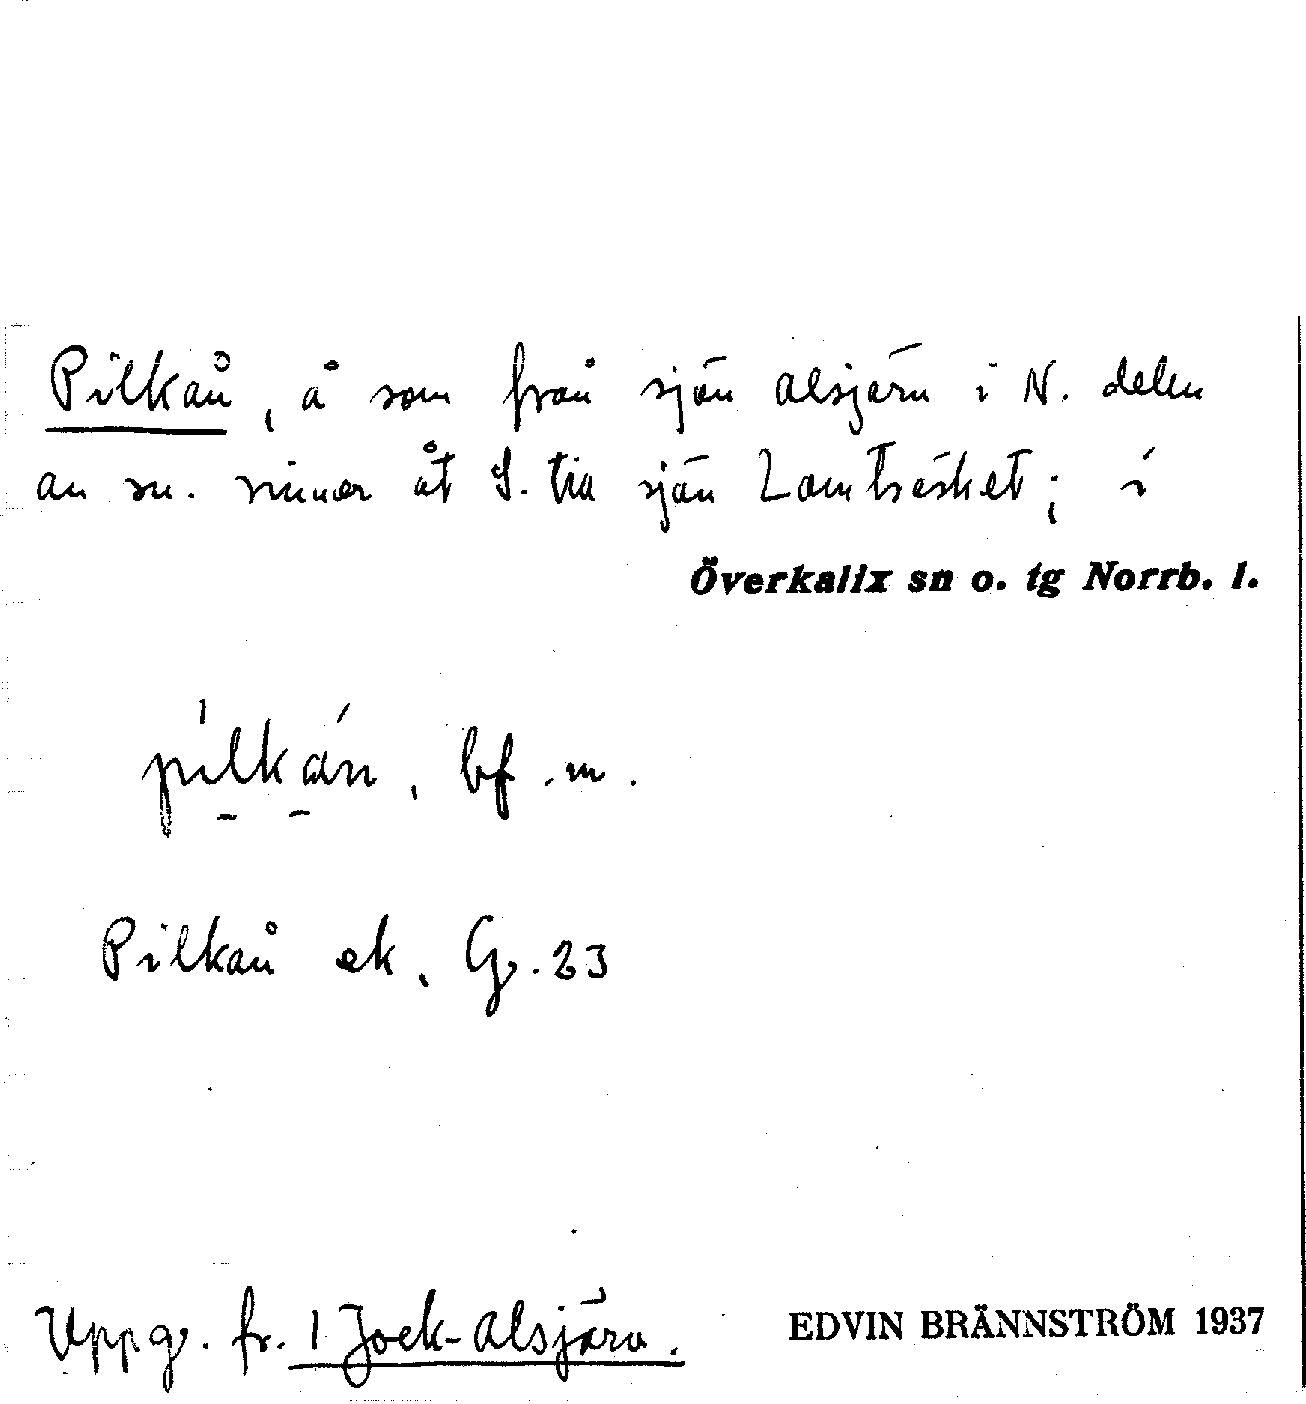 Pilkån, å som från sjön Alsjärv i N. delen
av sn. rinner åt S. till sjön Lomträsket; i
Överkalix sn o. tg Norrb. l.
pilkån, bf. m.
Pilkån ek. G. 23
Uppg. fr. 1 Jock-Alsjärv.
EDVIN BRÄNNSTRÖM 1937